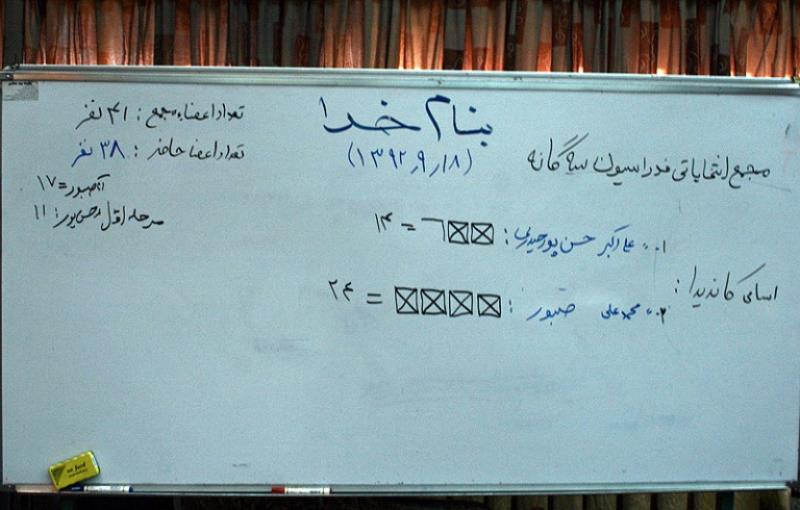 بنام خدا
(۱۳۹۲٫۹٫۱۸)
تعداد اعضاء مجمع : ۴۱ نفر
تعداد اعضا حاضر : ۳۸ نفر
صبور = ۱۷
مرحله اول حسن پور : ۱۱
مجمع انتخاباتی فدراسیون سه گانه
اسامی کاندیدا :
۱. علی اکبر حسن پور حیدری : = ۱۴
۲. محمد علی صبور : = ۲۴